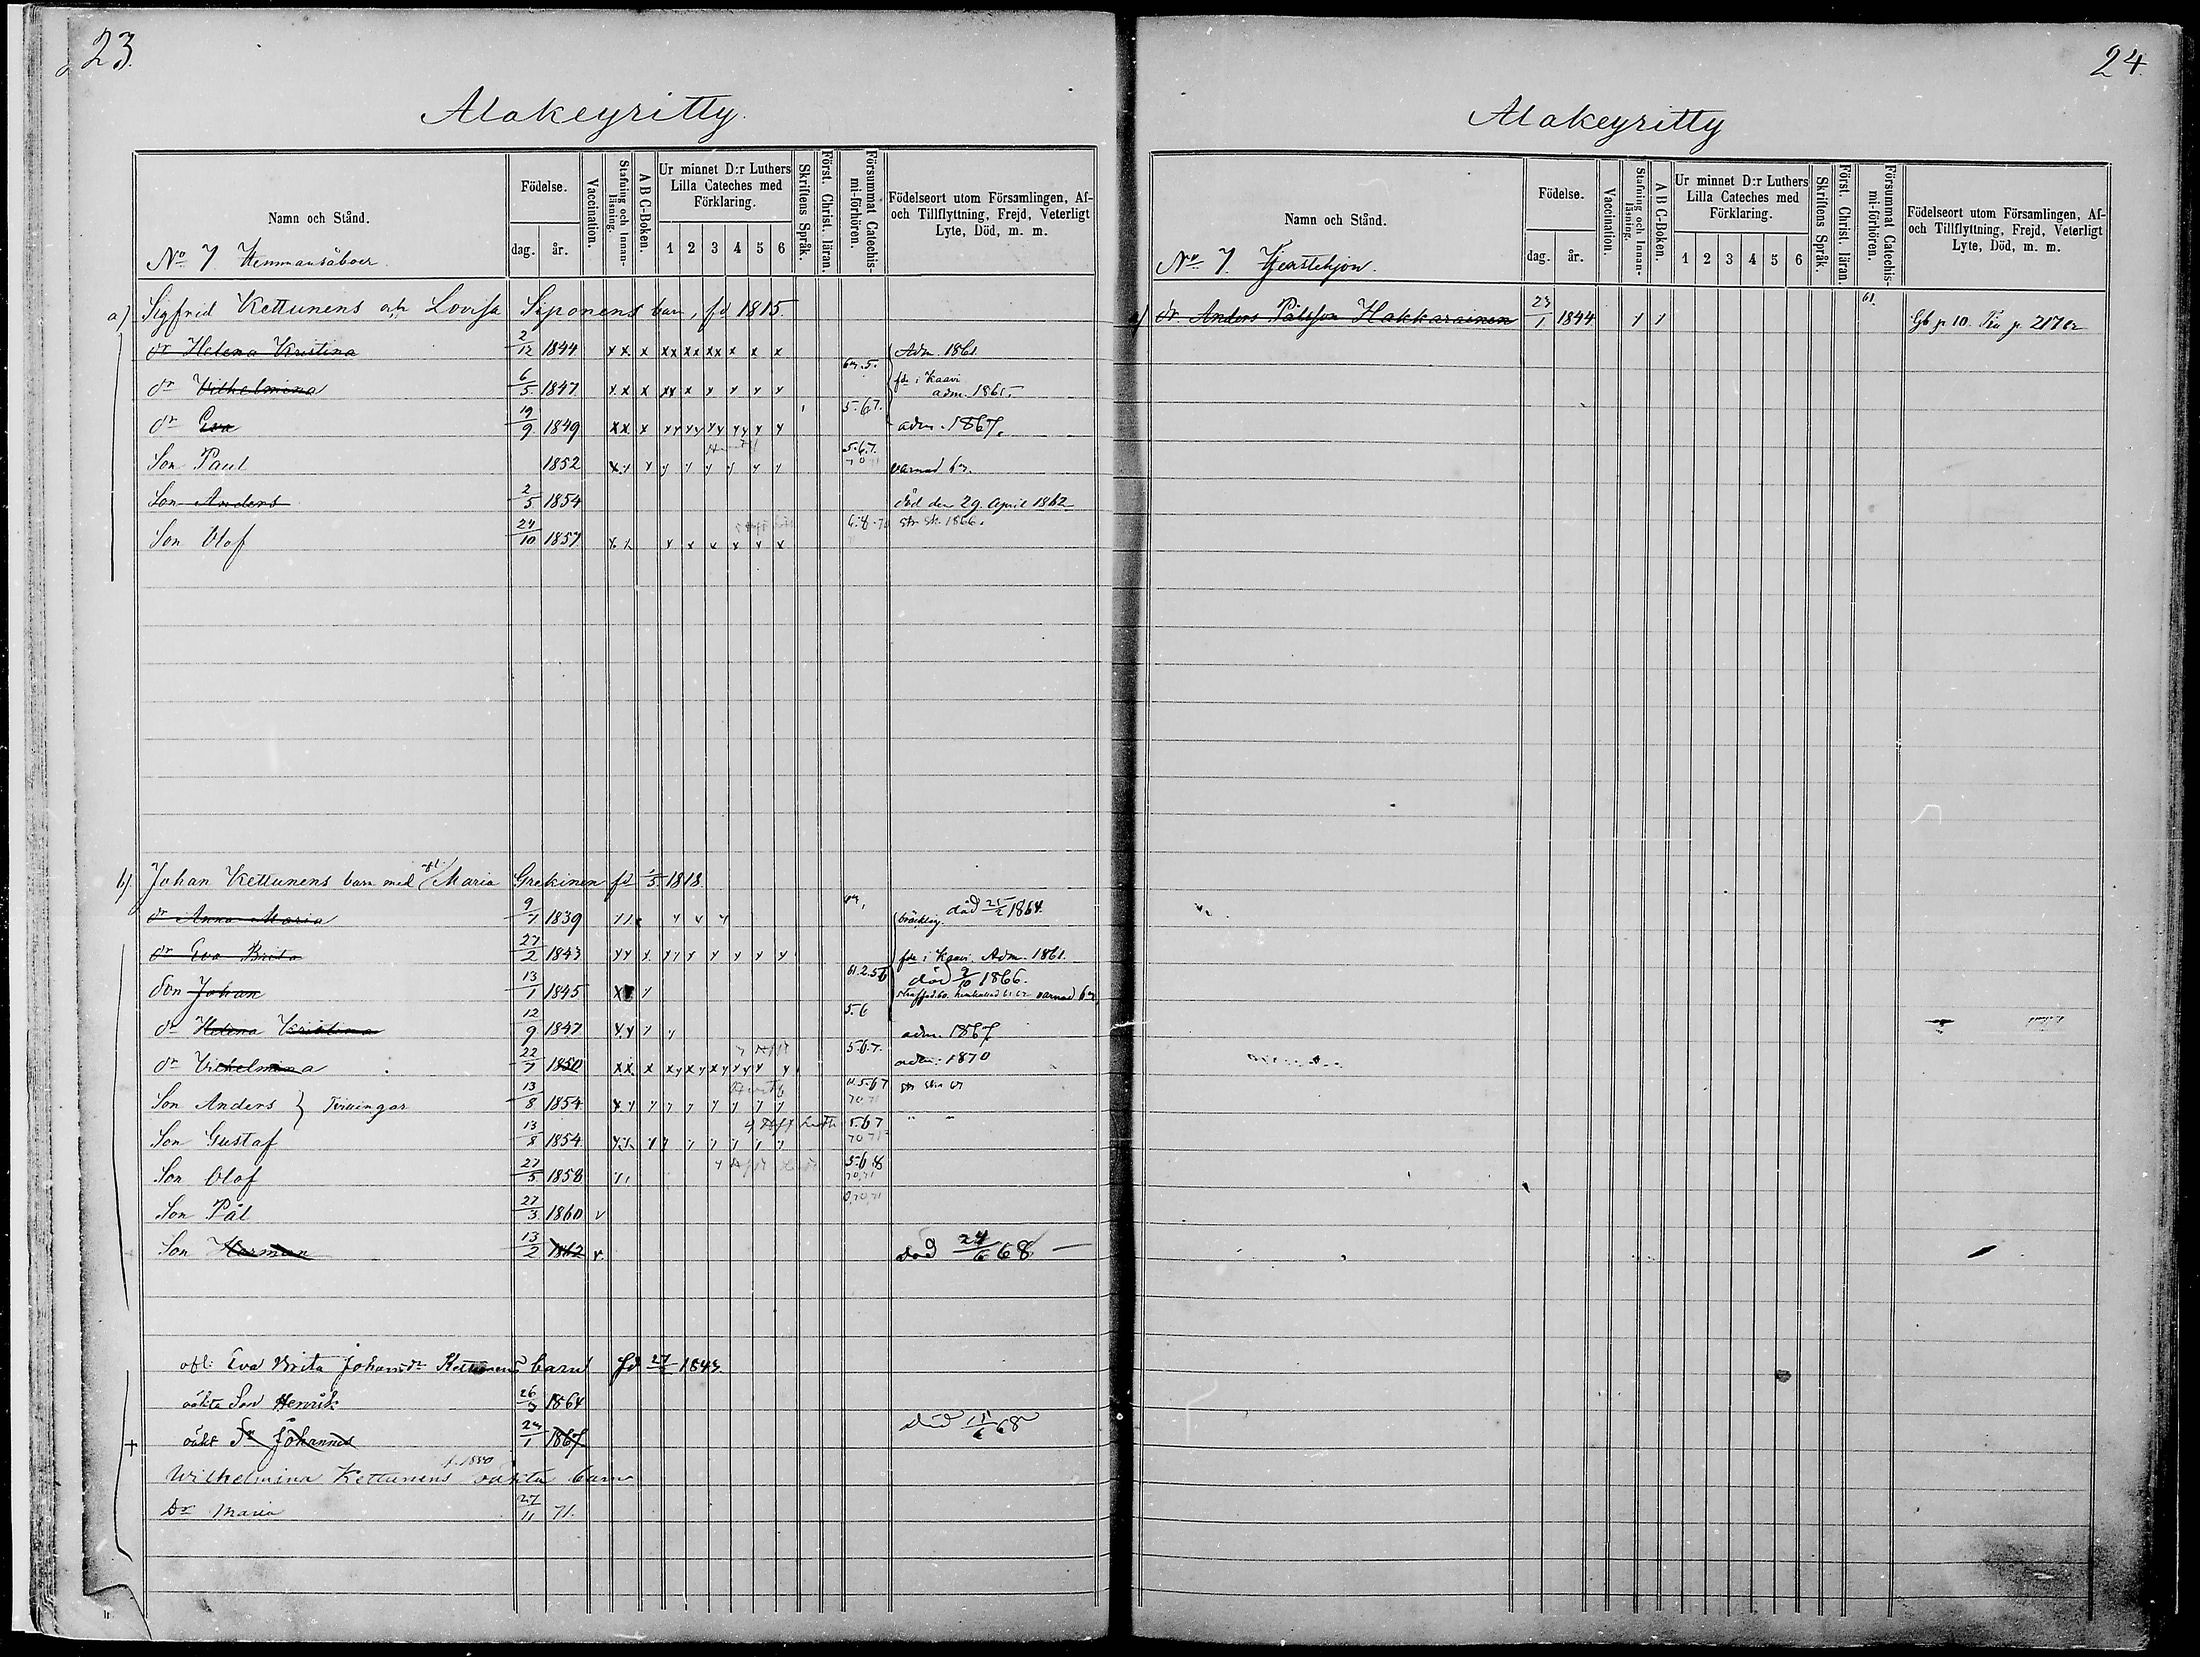 23.
Alakeyritty.
Namn och Stånd.
Födelse.
dag. år.
Vaccination.
Stafning och Innan-läsning.
A B C-Boken.
Ur minnet D:r Luthers Lilla Cateches med Förklaring.
1 2 3 4 5 6
Skriftens Språk.
Först. Christ. läran.
Försummat Catechis-mi-förhören.
Födelseort utom Församlingen, Af- och Tillflyttning, Frejd, Veterligt Lyte, Död, m. m.
No 7 Hemmansåboer.
a) Sigfrid Kettunens och Lovisa Siponens barn, fd 1815.
dr Helena Kristina 2/12 1844 Adm. 1861
dr Vilhelmina 6/5 1847 fdr i Kaavi adm. 1865
dr Eva 19/9 1849 5.67. adm. 1867.
Son Paul 1852 5.67. varnad
Son Anders 2/5 1854 död den 29 April 1862
Son Olof 24/10 1857 6.8.70 str. sk. 1866.
b) Johan Kettunens barn med Maria Grekinen fd 1818
dr Anna Maria 9/7 1839 bräcklig. död 1864.
dr Eva Brita 27/2 1843 fdr i Kaavi Adm. 1861.
Son Johan 13/1 1845 61.2.56 död 9/10 1866. varnad
dr Helena Kristina 12/9 1847 5.6 adm. 1867
dr Vilhelmina 22/7 1850 5.6.7. adm. 1870
Son Anders } Tvillingar 13/8 1854 70 71
Son Gustaf 13/8 1854 5.67 70 71 " "
Son Olof 27/5 1858 5.68 70,71
Son Pål 27/3 1860 v
Son Herman 13/2 1862 v död 24/6 68
ofl: Eva Brita Johansdr Kettunens barn fd 27/2 1843
oäkta Son Henrik 26/3 1864
oäkt Sn Johannes 1867 död 68
Wilhelmina Kettunens f. 1850 oäkta barn
Dr Maria 27/11 71.
24.
Alakeyritty
Namn och Stånd.
Födelse.
dag. år.
Vaccination.
Stafning och Innan-läsning.
A B C-Boken.
Ur minnet D:r Luthers Lilla Cateches med Förklaring.
1 2 3 4 5 6
Skriftens Språk.
Först. Christ. läran.
Försummat Catechis-mi-förhören.
Födelseort utom Församlingen, Af- och Tillflyttning, Frejd, Veterligt Lyte, Död, m. m.
No 7.
a) dr Anders Pålsson Hakkarainen 23/1 1844 61. Gb p 10. p. 217